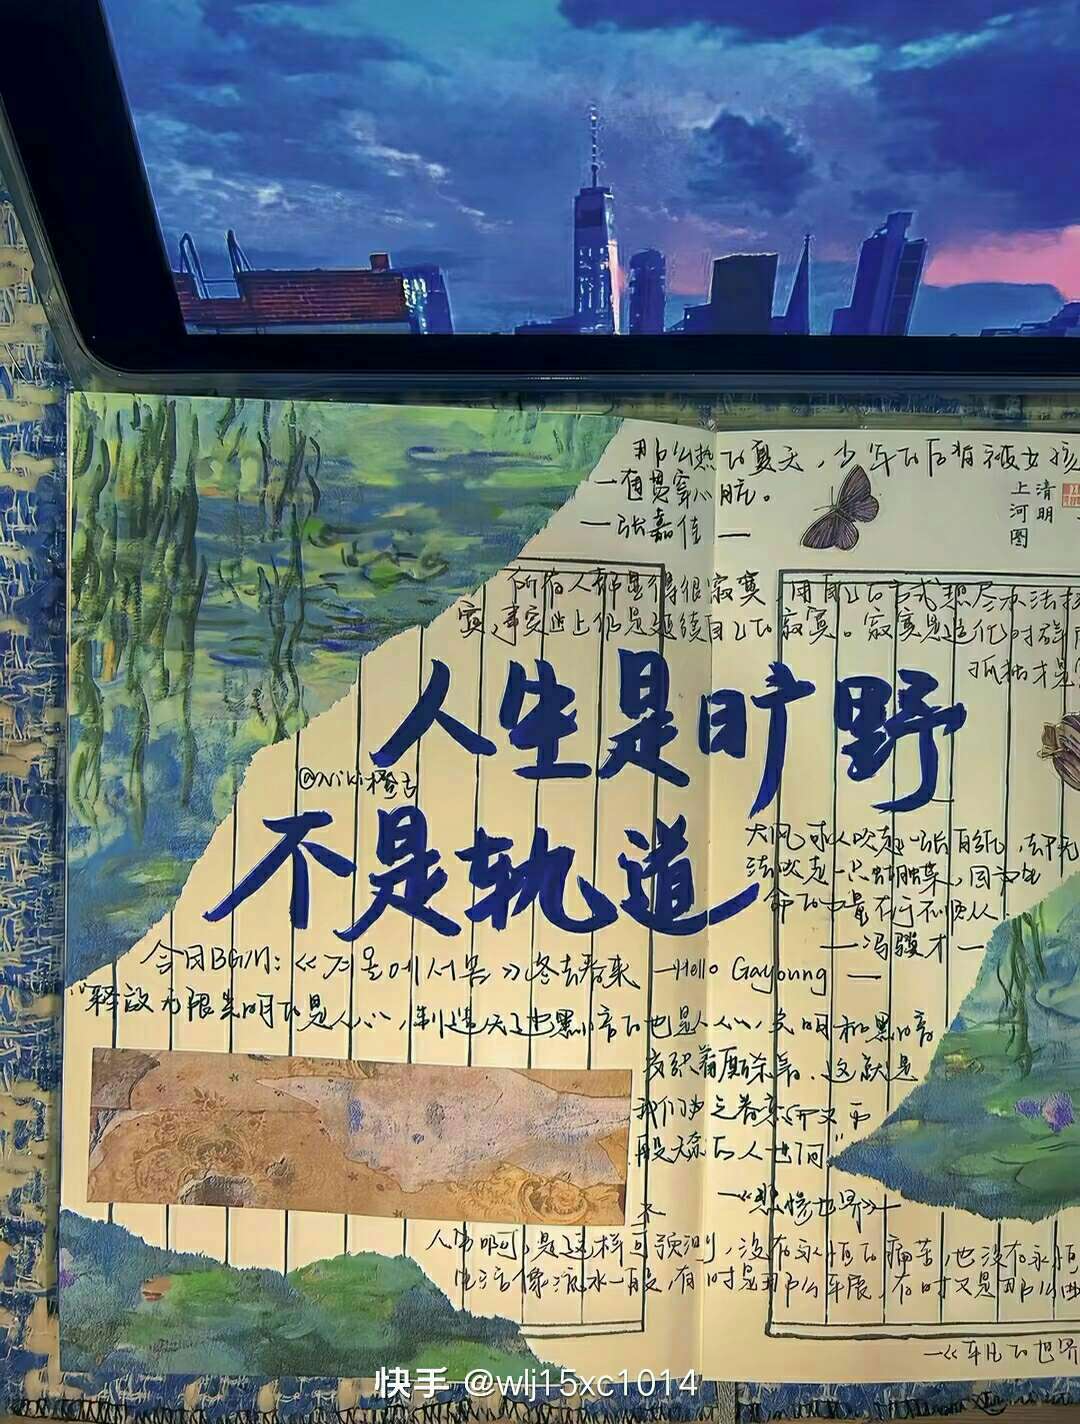 那么热的夏天，少年的后背被女孩
一直贯穿心脏。
—张嘉佳—
清明
上河图
所有人都显得很寂寞，用自己的方式想尽办法
寞，事实上仍是延续自己的寂寞。寂寞是造化对群
孤独才是
人生是旷野
@Niki橙子
不是轨道
大风可以吹起一张白纸，却无
法吹走一只蝴蝶，因为生
命的力量在于不顺从
—冯骥才—
今日BGM：《겨울에서 봄》冬去春来 —Hello Gayoung—
"释放无限光明的是人心，制造无边黑暗的也是人心，光明和黑暗
交织着厮杀着，这就是
我们为之眷恋而又万
般无奈的人世间"
—《悲惨世界》—
人生啊，是这样不可预测，没有永恒的痛苦，也没有永恒
生活像流水一般，有时是那么平展，有时又是那么曲
—《平凡的世界
快手 @wlj15xc1014